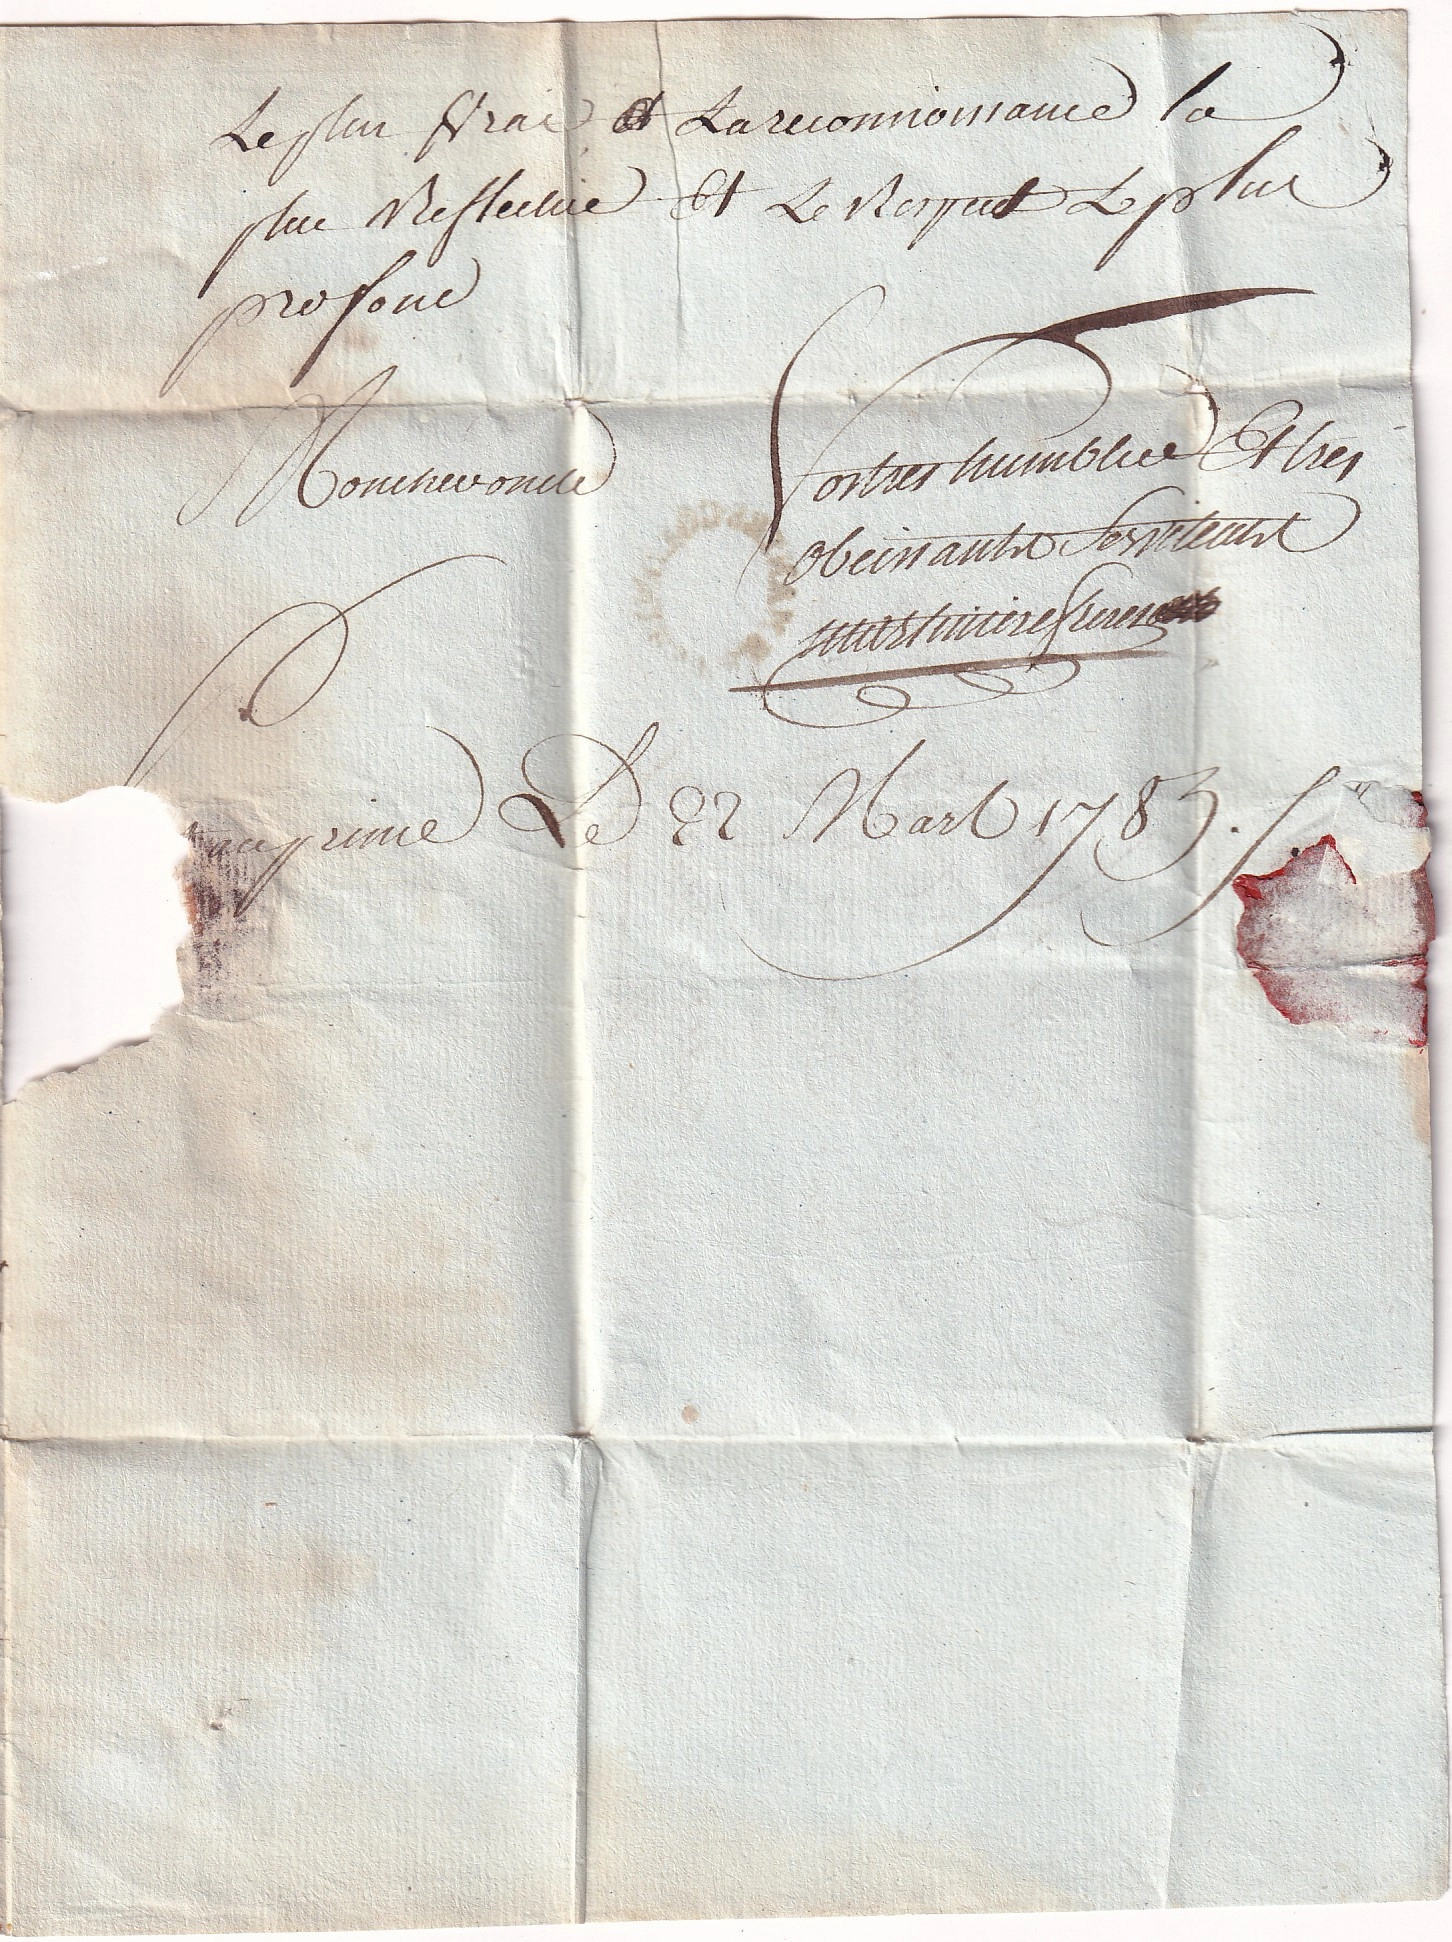 Le plus Vrai et La reconnoissance la
plus Reflechie Et Le Respect Le plus
profond
Mon cher oncle
Vos tres humbles Et tres
Obeissants Serviteurs
Martiniere freres
Le 22 Mars 1783.